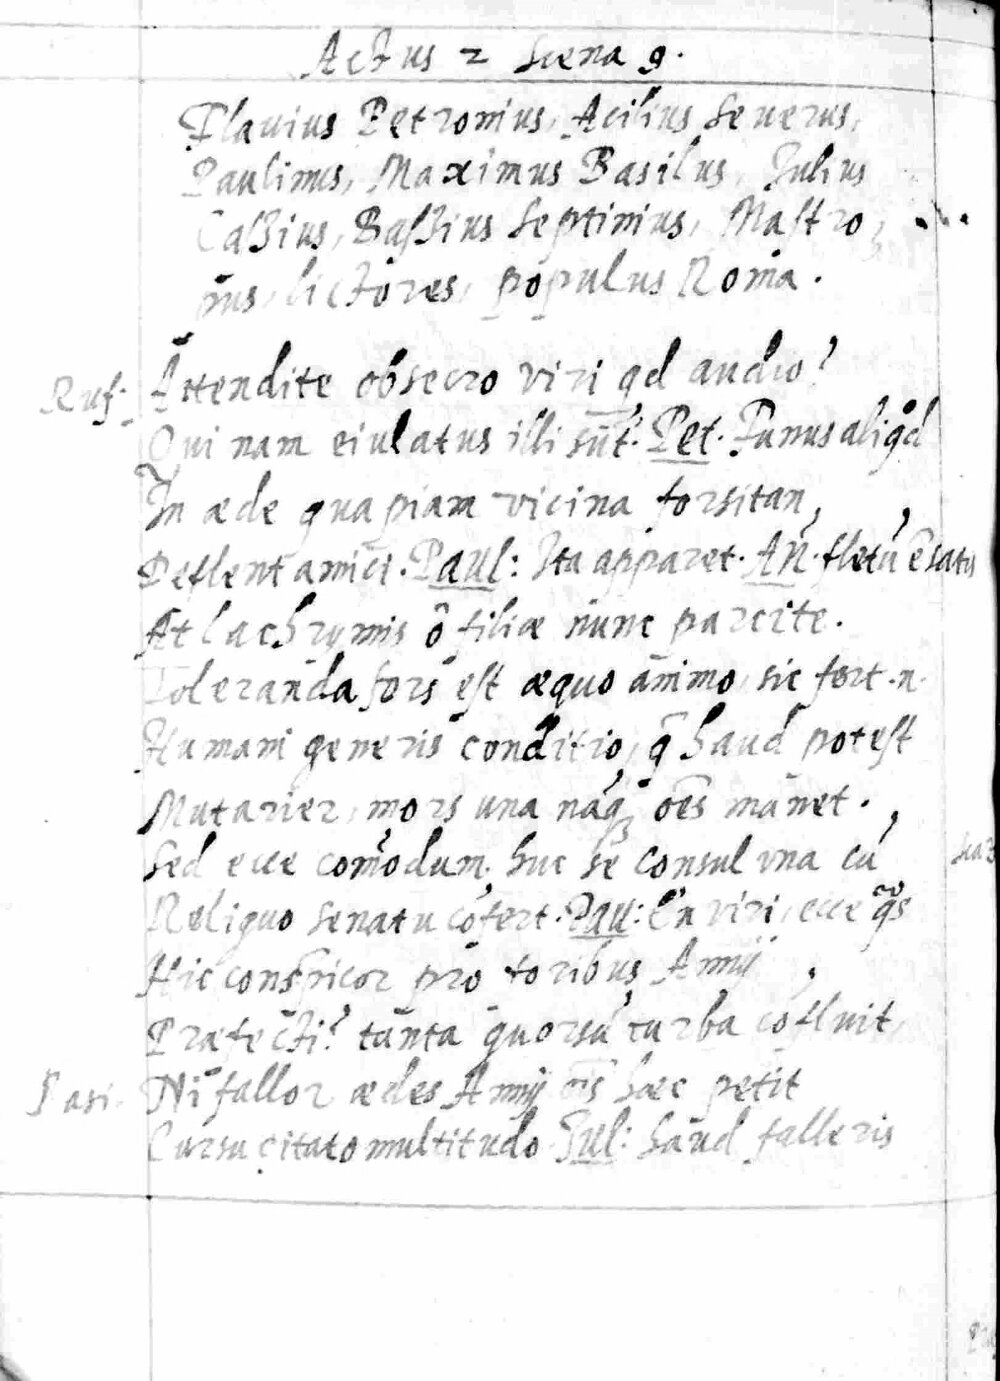 Actus 2 Scena 9.
Flavius Petronius, Acilius Severus,
Paulinus, Maximus Basilus, Julius
Caßius, Baßius Septimius, Mastro
nus, lictores, populus Roma.
Ruf: Attendite obsecro viri qd audio?
Qui nam eiulatus illi sūt? Pet. Funus aliqd
In æde quapiam vicina forsitan,
Deflent amici. Paul: Ita apparet. An. fletū ē satis
At lachrymis ô filiæ nunc parcite.
Toleranda fors est æquo animo, sic fert .n.
Humani generis conditio, q̄ haud potest
Mutarier, mors una nāq oēs manet.
Sed ecce com̄odum huc sē consul una cū
Reliquo senatu cōfert. Pau: En viri, ecce q̄s
Hic conspicor pro foribus Annij
Præfecti? tanta quorsū turba cōfluit,
Basi. Ni fallor ædes Annij oīs hæc petit
Cursu citato multitudo. Jul: haud falleris